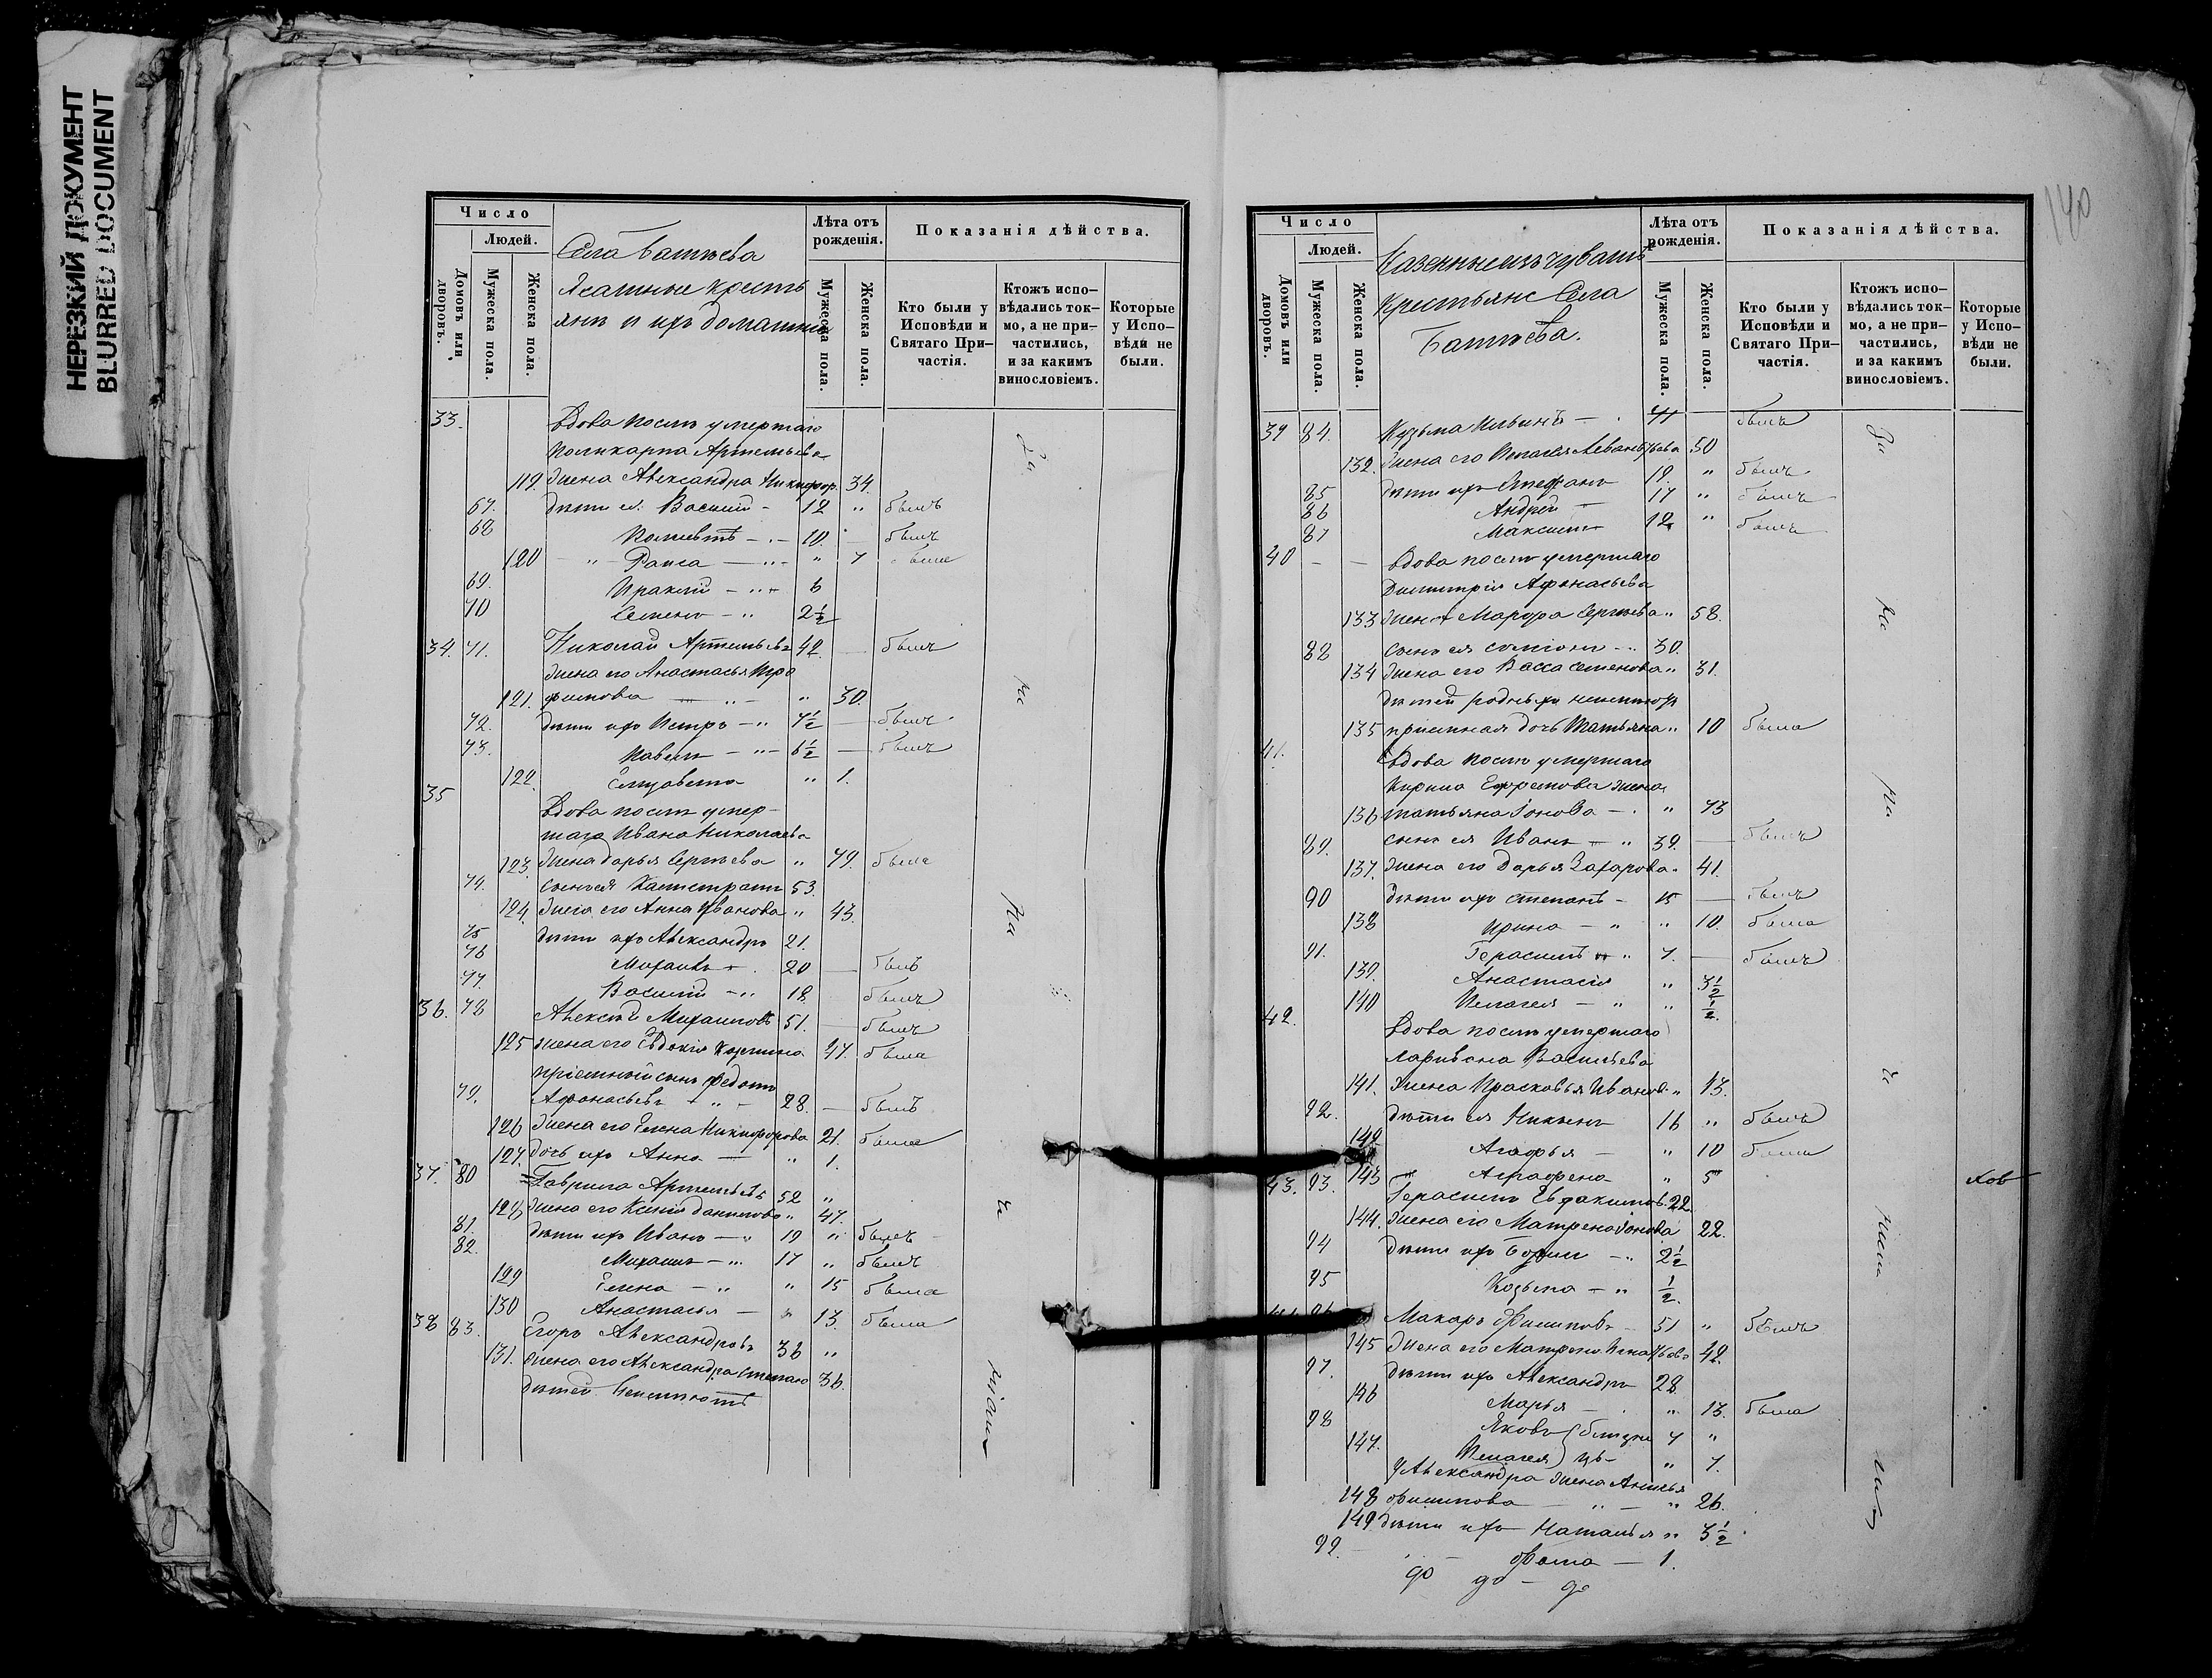 НЕРЕЗКИЙ ДОКУМЕНТ
BLURRED DOCUMENT
Число
Людей.
Домовъ или дворовъ.
Мужеска пола.
Женска пола.
Села Батѣева
Ясашные кресть
яне и ихъ домашніе
Лѣта отъ рожденія.
Мужеска пола.
Женска пола.
Показанія дѣйства.
Кто были у Исповѣди и Святаго При-частія.
Ктожъ испо-вѣдались ток-мо, а не при-частились, и за какимъ винословіемъ.
Которые у Испо-вѣди не были.
33. Вдова послѣ умершаго
Поликарпа Артемьева
119. жена Александра Никифор. 34.
67. дѣти ея: Василій - 12 " былъ
68 10. былъ
120 " Раиса " 7 была
69. Ираклій 6
70 Семенъ - " 2½
34. 71. Николай Артемьевъ 42. былъ
жена его Анастасья Тро
121. фимова " 30.
72. дѣти ихъ Петръ - " 7½ былъ
73. Павелъ - " 6½ былъ
122. Елизавета " 1.
35 Вдова послѣ умер-
шаго Ивана Николаева
123. жена Дарья Сергѣева " 79. была
74. сынъ ея Калистратъ 53.
124. жена его Анна Иванова " 43.
75 дѣти ихъ Александръ 21.
76 Михаилъ 20 былъ
77. Василій - " 18. былъ
36. 78 Алексѣй Михаиловъ 51. былъ
125 жена его Евдокія Козмина 47. была
пріемный сынъ Федотъ
79. Афонасьевъ " 28. былъ
126 жена его Елена Никифорова 21. была
127. дочь ихъ Анна " 1.
37. 80 Гаврила Артемьевъ 52 "
128 жена его Ксенія Данилова " 47.
81. дѣти ихъ Иванъ - " 19 " былъ
82. Михаилъ - " 17 " былъ
129 Елена - " " 15 была
130 Анастасья " 13. была
38 83. Егоръ Александровъ 36 "
131. жена его Александра Степано 36.
дѣтей неимѣютъ
За
ка
ки
140
Число
Людей.
Домовъ или дворовъ.
Мужеска пола.
Женска пола.
Казенные изъ чувашъ
Крестьяне Села
Батѣева.
Лѣта отъ рожденія.
Мужеска пола.
Женска пола.
Показанія дѣйства.
Кто были у Исповѣди и Святаго При-частія.
Ктожъ испо-вѣдались ток-мо, а не при-частились, и за какимъ винословіемъ.
Которые у Испо-вѣди не были.
39 84. Кузьма Ильинъ былъ
132. жена его Пелагея Леонтьева 50
85 дѣти ихъ Стефанъ 19. " былъ
86 Андрей 17 " былъ
87 Максимъ 12 " былъ
40 Вдова послѣ умершаго
Димитрія Афонасьева
133 жена Марфа Сергѣева " 58.
88 сынъ ея 30.
134 жена его Васса Семенова " 31.
дѣтей родныхъ неимѣютъ
135 пріемная дочь Татьяна " 10 была
41. Вдова послѣ умершаго
Кирила Ефремова жена
136 Татьяна Іонова " 73
89. сынъ ея Иванъ " 39. былъ
137. жена его Дарья Захарова " 41.
90 дѣти ихъ Степанъ - 15 былъ
138 Ирина - " " 10. была
91. Герасимъ " 7. былъ
139. Анастасія " 3½
140 Пелагея - " " ½.
42. Вдова послѣ умершаго
Ларивона Васильева
141. жена Прасковья Иванов. "
92. дѣти ея 16 " былъ
142 Агафья " 10 была
143 " Аграфена " 5
43. 93. Герасимъ Евдокимовъ 22
144. жена его Матрена Іонова 22.
94 дѣти ихъ 2½
95 Козьма - " ½.
Макаръ Филиповъ 51 " былъ
145 жена его Матрена Игнатьева 42.
97. дѣти ихъ Александръ 28.
146 Марья " 13. была
98 Яковъ близне 7 "
147. Пелагея цы - " 7.
у Александра жена Анисья
148 Филипова " " 26.
149 дѣти ихъ Наталья " 3½
99. Фома 1.
За
ка